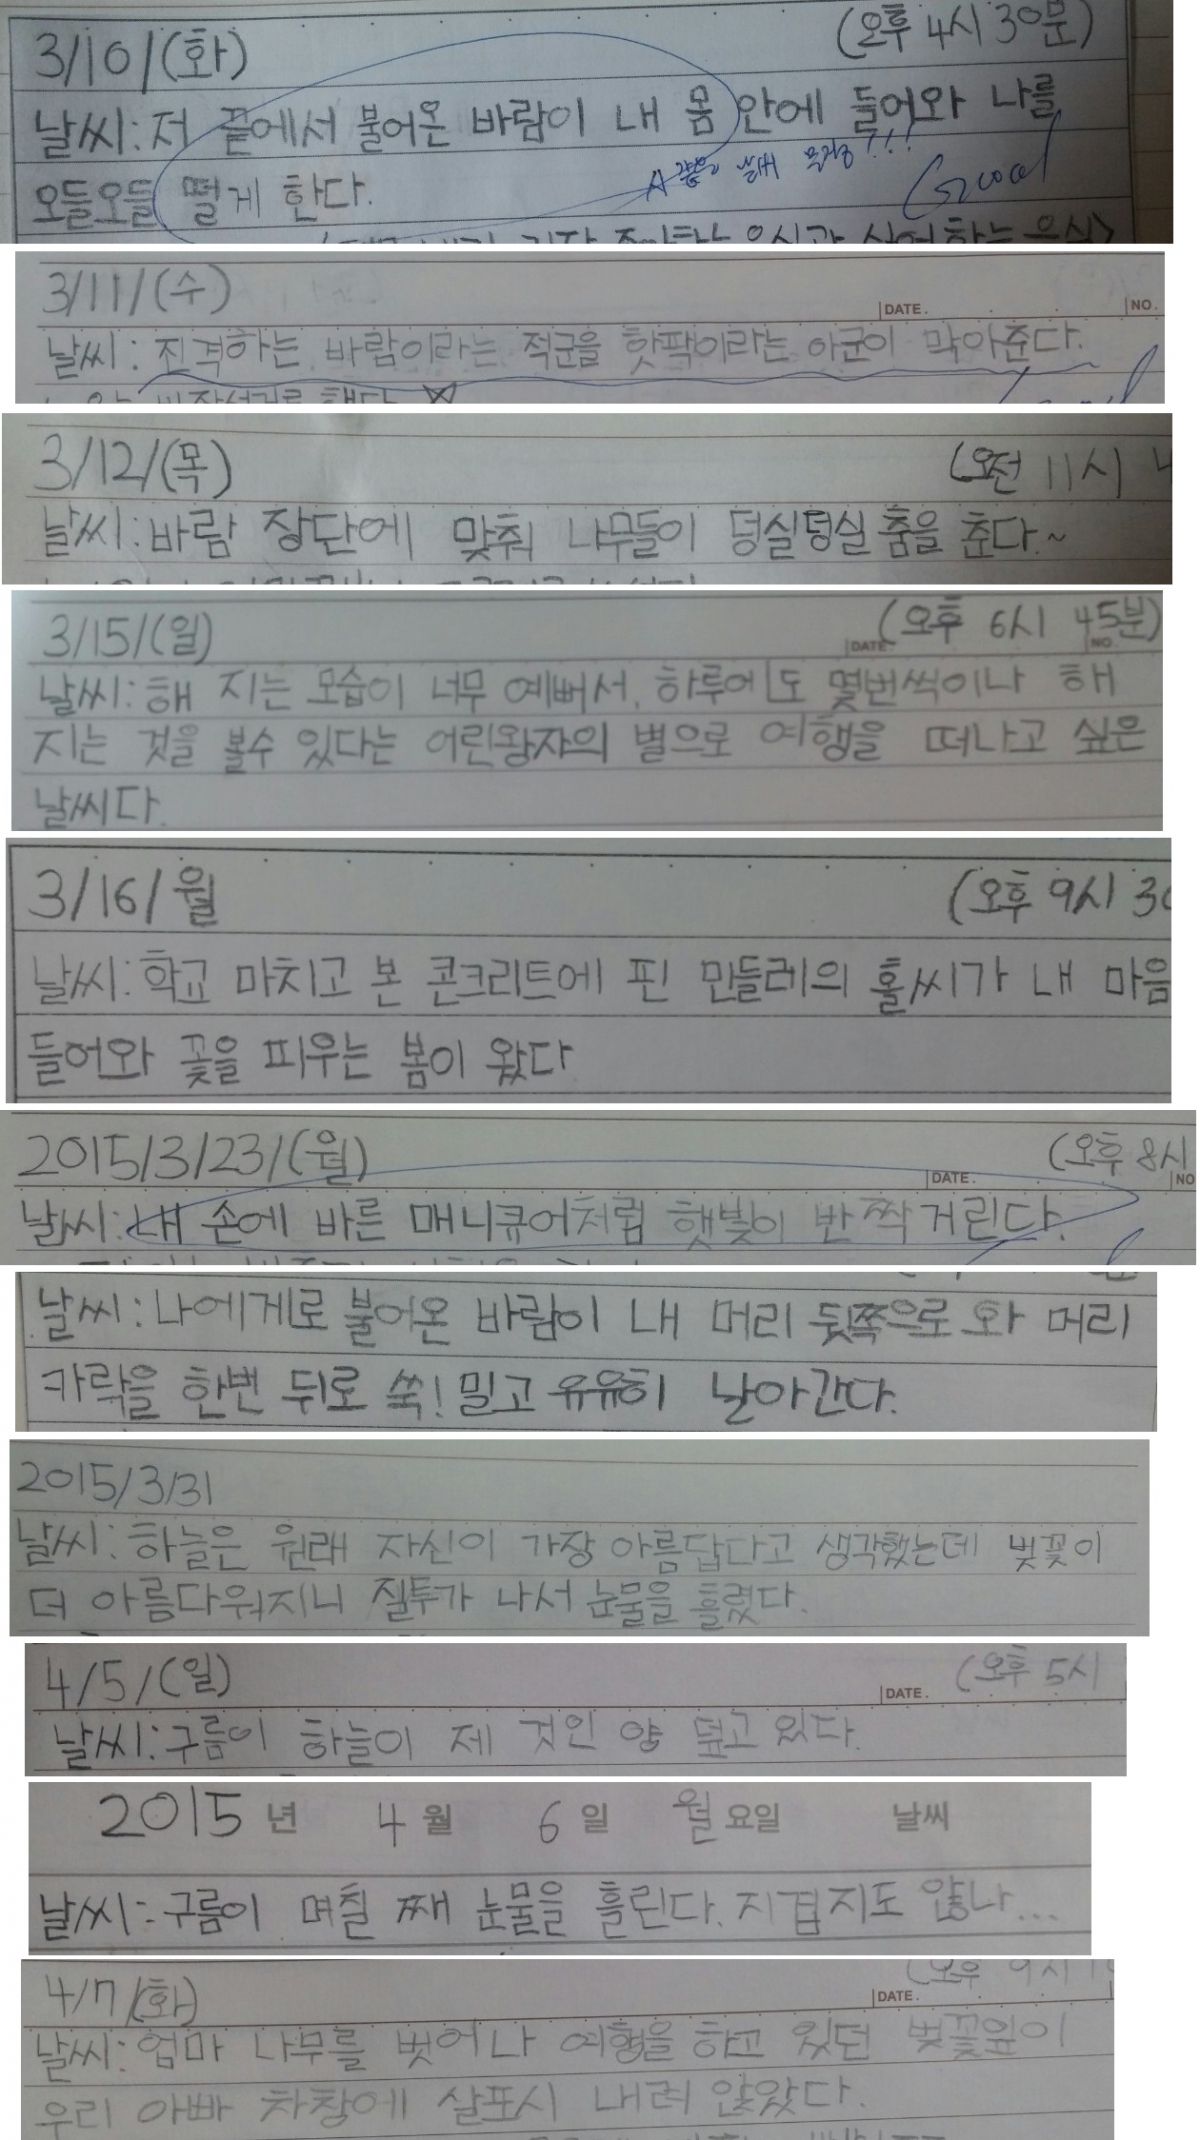 3/10/(화) (오후 4시 30분)
날씨: 저 끝에서 불어온 바람이 내 몸 안에 들어와 나를
오들오들 떨게 한다.
Good
3/11/(수) DATE. NO.
날씨: 진격하는 바람이라는 적군을 핫팩이라는 아군이 막아준다.
3/12/(목) (오전 11시
날씨: 바람 장단에 맞춰 나무들이 덩실덩실 춤을 춘다.~
3/15/(일) DATE. (오후 6시 45분) NO.
날씨: 해 지는 모습이 너무 예뻐서, 하루에도 몇번씩이나 해
지는 것을 볼수 있다는 어린왕자의 별으로 여행을 떠나고 싶은
날씨다.
3/16/월 (오후 9시 30
날씨: 학교 마치고 본 콘크리트에 핀 민들레의 홀씨가 내 마음
들어와 꽃을 피우는 봄이 왔다
2015/3/23/(월) DATE. (오후 8시 NO
날씨: 내 손에 바른 매니큐어처럼 햇빛이 반짝거린다.
날씨: 나에게로 불어온 바람이 내 머리 뒷쪽으로 와 머리
카락을 한번 뒤로 쑥! 밀고 유유히 날아간다.
2015/3/31
날씨: 하늘은 원래 자신이 가장 아름답다고 생각했는데 벚꽃이
더 아름다워지니 질투가 나서 눈물을 흘렸다.
4/5/(일) DATE. (오후 5시
날씨: 구름이 하늘이 제 것인 양 덮고 있다.
2015 년 4 월 6 일 월 요일 날씨
날씨: 구름이 며칠 째 눈물을 흘린다. 지겹지도 않나...
4/7/(화) DATE. (오후 9시
날씨: 엄마 나무를 벗어나 여행을 하고 있던 벚꽃잎이
우리 아빠 차창에 살포시 내려 앉았다.